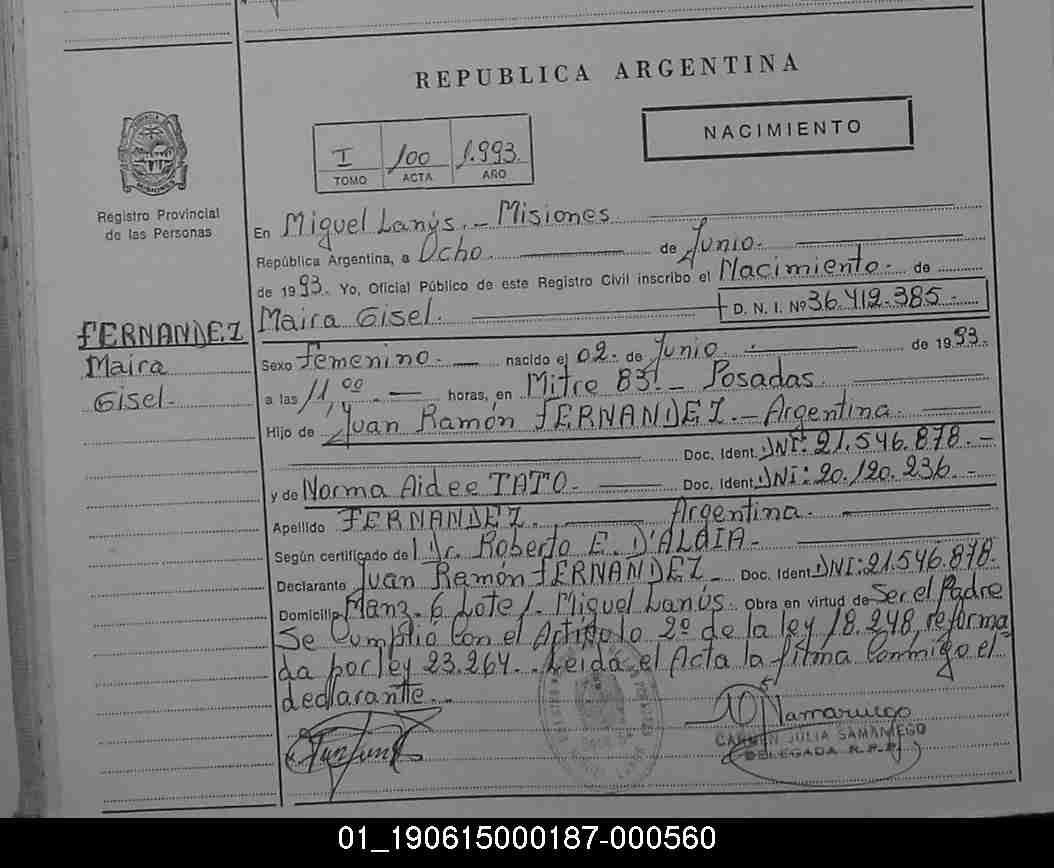 REPUBLICA ARGENTINA
NACIMIENTO
I 100 1.993.
TOMO ACTA AÑO
Registro Provincial
de las Personas
En Miguel Lanús._ Misiones
República Argentina, a Ocho. de Junio.
de 1993. Yo, Oficial Público de este Registro Civil inscribo el Nacimiento. de
Maira Gisel. D. N. I. Nº 36.412.385.-
FERNANDEZ
Maira
Gisel.
Sexo femenino. nacido el 02. de Junio. de 1993.
a las 11,00 horas, en Mitre 83!_ Posadas.
Hijo de Juan Ramón FERNANDEZ._ Argentina.
Doc. Ident. DNI: 21.546.878.-
y de Norma Aidee TATO. Doc. Ident. DNI: 20.120.236.-
Apellido FERNANDEZ. Argentina.
Según certificado del Dr. Roberto E. D'ALAIA_
Declarante Juan Ramón FERNANDEZ_ Doc. Ident. DNI: 21.546.878.
Domicilio Manz. 6 Lote 1. Miguel Lanús. Obra en virtud de Ser el Padre
Se Cumplio Con el Artículo 2º de la ley 18.248, reforma
da por ley 23.264._ Leida el Acta la firma Conmigo el
declarante._
CARMEN JULIA SAMANIEGO
DELEGADA R.P.P.
01_190615000187-000560